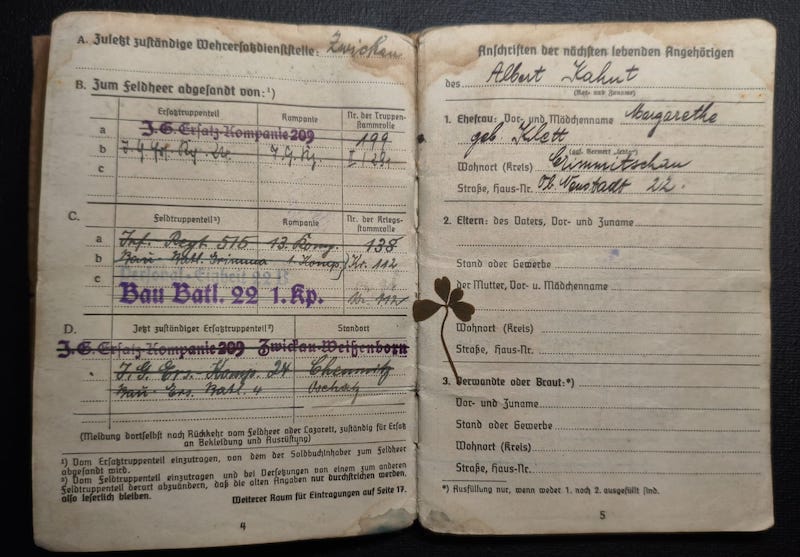 A. Zuletzt zuständige Wehrersatzdienststelle: Zwickau
B. Zum Feldheer abgesandt von:¹)
Ersatztruppenteil Kompanie Nr. der Truppenstammrolle
a J.G. Ersatz-Kompanie 209 199
b
c
C. Feldtruppenteil²) Kompanie Nr. der Kriegsstammrolle
a Inf. Regt. 515 13. Komp. 138
b Bau-Batl. Grimma 1. Komp. Kr. 112
c Bau Batl. 22 1. Kp.
D. Jetzt zuständiger Ersatztruppenteil²) Standort
J.G. Ersatz-Kompanie 209 Zwickau-Weißenborn
J.G. Ers. Komp. 24 Chemnitz
Bau-Ers. Batl. 4 Oschatz
(Meldung dortselbst nach Rückkehr vom Feldheer oder Lazarett, zuständig für Ersatz
an Bekleidung und Ausrüstung)
¹) Vom Ersatztruppenteil einzutragen, von dem der Soldbuchinhaber zum Feldheer
abgesandt wird.
²) Vom Feldtruppenteil einzutragen und bei Versetzungen von einem zum anderen
Feldtruppenteil derart abzuändern, daß die alten Angaben nur durchstrichen werden,
also leserlich bleiben.
Weiterer Raum für Eintragungen auf Seite 17.
4
Anschriften der nächsten lebenden Angehörigen
des Albert Kahnt
(Vor- und Zuname)
1. Ehefrau: Vor- und Mädchenname Margarethe
geb. Klett
(ggf. Vermerk „ledig“)
Wohnort (Kreis) Crimmitschau
Straße, Haus-Nr. Ob. Neustadt 22.
2. Eltern: des Vaters, Vor- und Zuname
Stand oder Gewerbe
der Mutter, Vor- u. Mädchenname
Wohnort (Kreis)
Straße, Haus-Nr.
3. Verwandte oder Braut:*)
Vor- und Zuname
Stand oder Gewerbe
Wohnort (Kreis)
Straße, Haus-Nr.
*) Ausfüllung nur, wenn weder 1. noch 2. ausgefüllt sind.
5